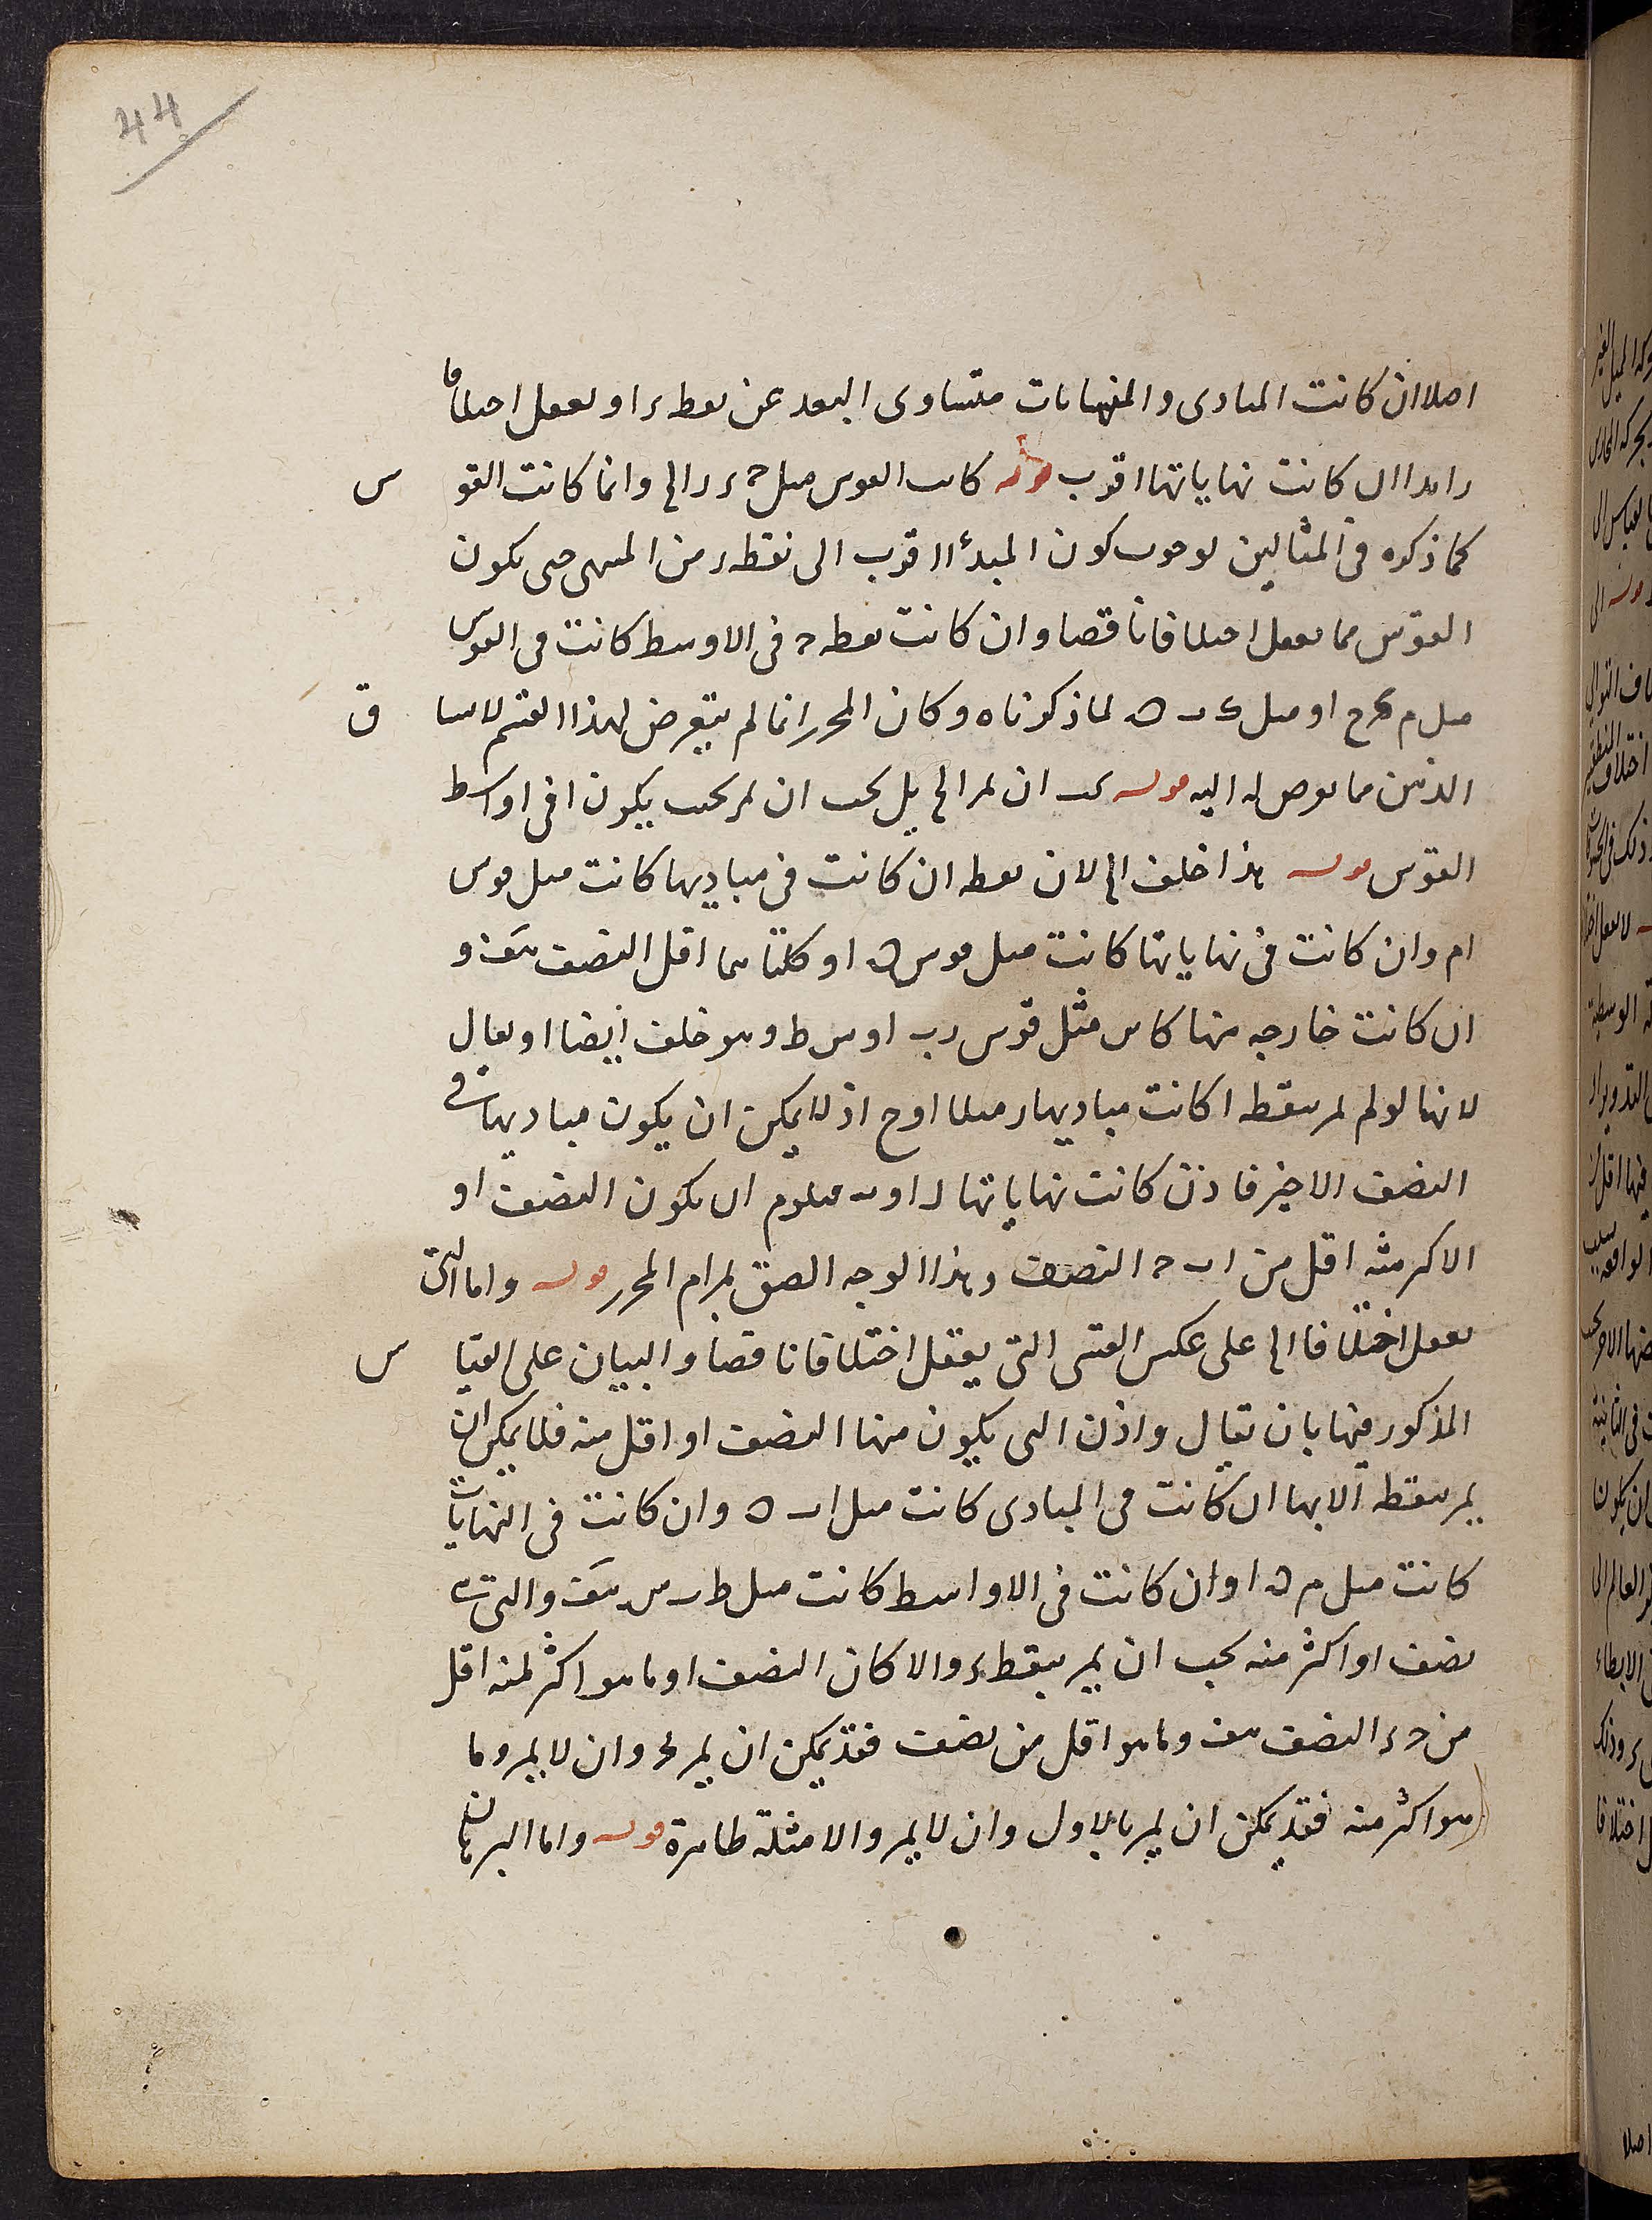 44
اصلا ان كانت المبادى والنهايات متساوى البعد عن نقطه ء او يفعل اختلافا
زايدا ان كانت نهاياتها اقرب قوله كانت القوس مثل ح ء ر الخ وانما كانت القوس
كما ذكره فى المثالين لوجوب كون المبدأ اقرب الى نقطه ء من المنتهى حتى يكون
القوس مما يفعل اختلافا ناقصا وان كانت نقطه ح فى الاوسط كانت فى القوس
مثل م ح او مثل ب ه لما ذكرناه وكان المحرر انما لم يتعرض لهذا القسم لانسياق
الذهن مما تعرض له اليه قوله يجب ان تمر الخ بل يجب ان تمر بحيث يكون ا فى اواسط
القوس قوله هذا خلف الخ لان نقطه ان كانت فى مباديها كانت مثل قوس
ام وان كانت فى نهاياتها كانت مثل قوس ه ا وكلتاهما اقل النصف هف و
ان كانت خارجه منها كانت مثل قوس ر ب او س ط وهو خلف ايضا او يقال
لانها لو لم تمر بنقطه ا كانت مباديها ر مثلا او ح اذ لا يمكن ان يكون مباديها فى
النصف الاخير فاذن كانت نهاياتها د او ب فيلزم ان يكون النصف او
الاكثر منه اقل من ا ب ح النصف وهذا الوجه الصق بمرام المحرر قوله واما التى
يفعل اختلافا الخ على عكس القسى التى يفعل اختلافا ناقصا والبيان على القياس
المذكور فيها بان يقال واذن التى يكون منها النصف او اقل منه فلا يمكن ان
يمر بنقطه الانها ان كانت فى المبادى كانت مثل ا ب ه وان كانت فى النهايات
كانت مثل م ه ا وان كانت فى الاواسط كانت مثل ط ب س هف والتى
نصف او اكثر منه يجب ان يمر بنقطه ء والا كان النصف او ما هو اكثر منه اقل
من ح ء النصف هف وما هو اقل من نصف فقد يمكن ان يمر ء وان لا يمر وما
هو اكثر منه فقد يمكن ان يمر بالاول وان لا يمر والامثلة ظاهرة قوله واما البرهان